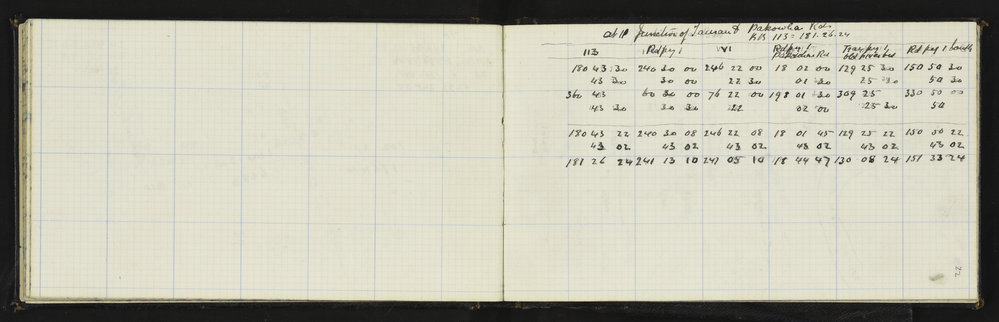 at IP Junction of Taurau & Pakowhai Rds
RB 113 = 181.26.24
113 Rd peg 1 VI Rd peg 1 Pakowhai Rd Trav peg 1, old Rd peg 1 South
180 43 30 240 30 00 246 22 00 18 02 00 129 25 30 150 50 30
43 30 30 00 22 30 01 30 25 30 50 30
360 43 60 30 00 76 22 00 198 01 30 309 25 330 50 00
43 30 30 30 22 02 00 25 30 50
180 43 22 240 30 08 246 22 08 18 01 45 129 25 22 150 50 22
43 02 43 02 43 02 43 02 43 02 43 02
181 26 24 241 13 10 247 05 10 18 44 47 130 08 24 151 33 24
22